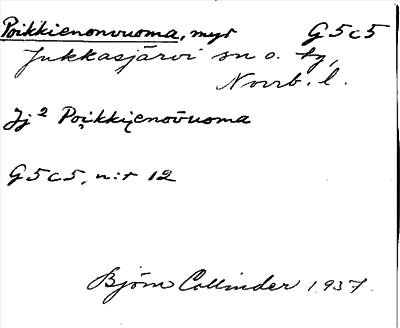 Poikkienonvuoma, myr G5c5
Jukkasjärvi sn o. tg,
Norrb. l.
Jj² Poi̮kki̮enov̄uoma
G5c5, n:r 12
Björn Collinder 1937.